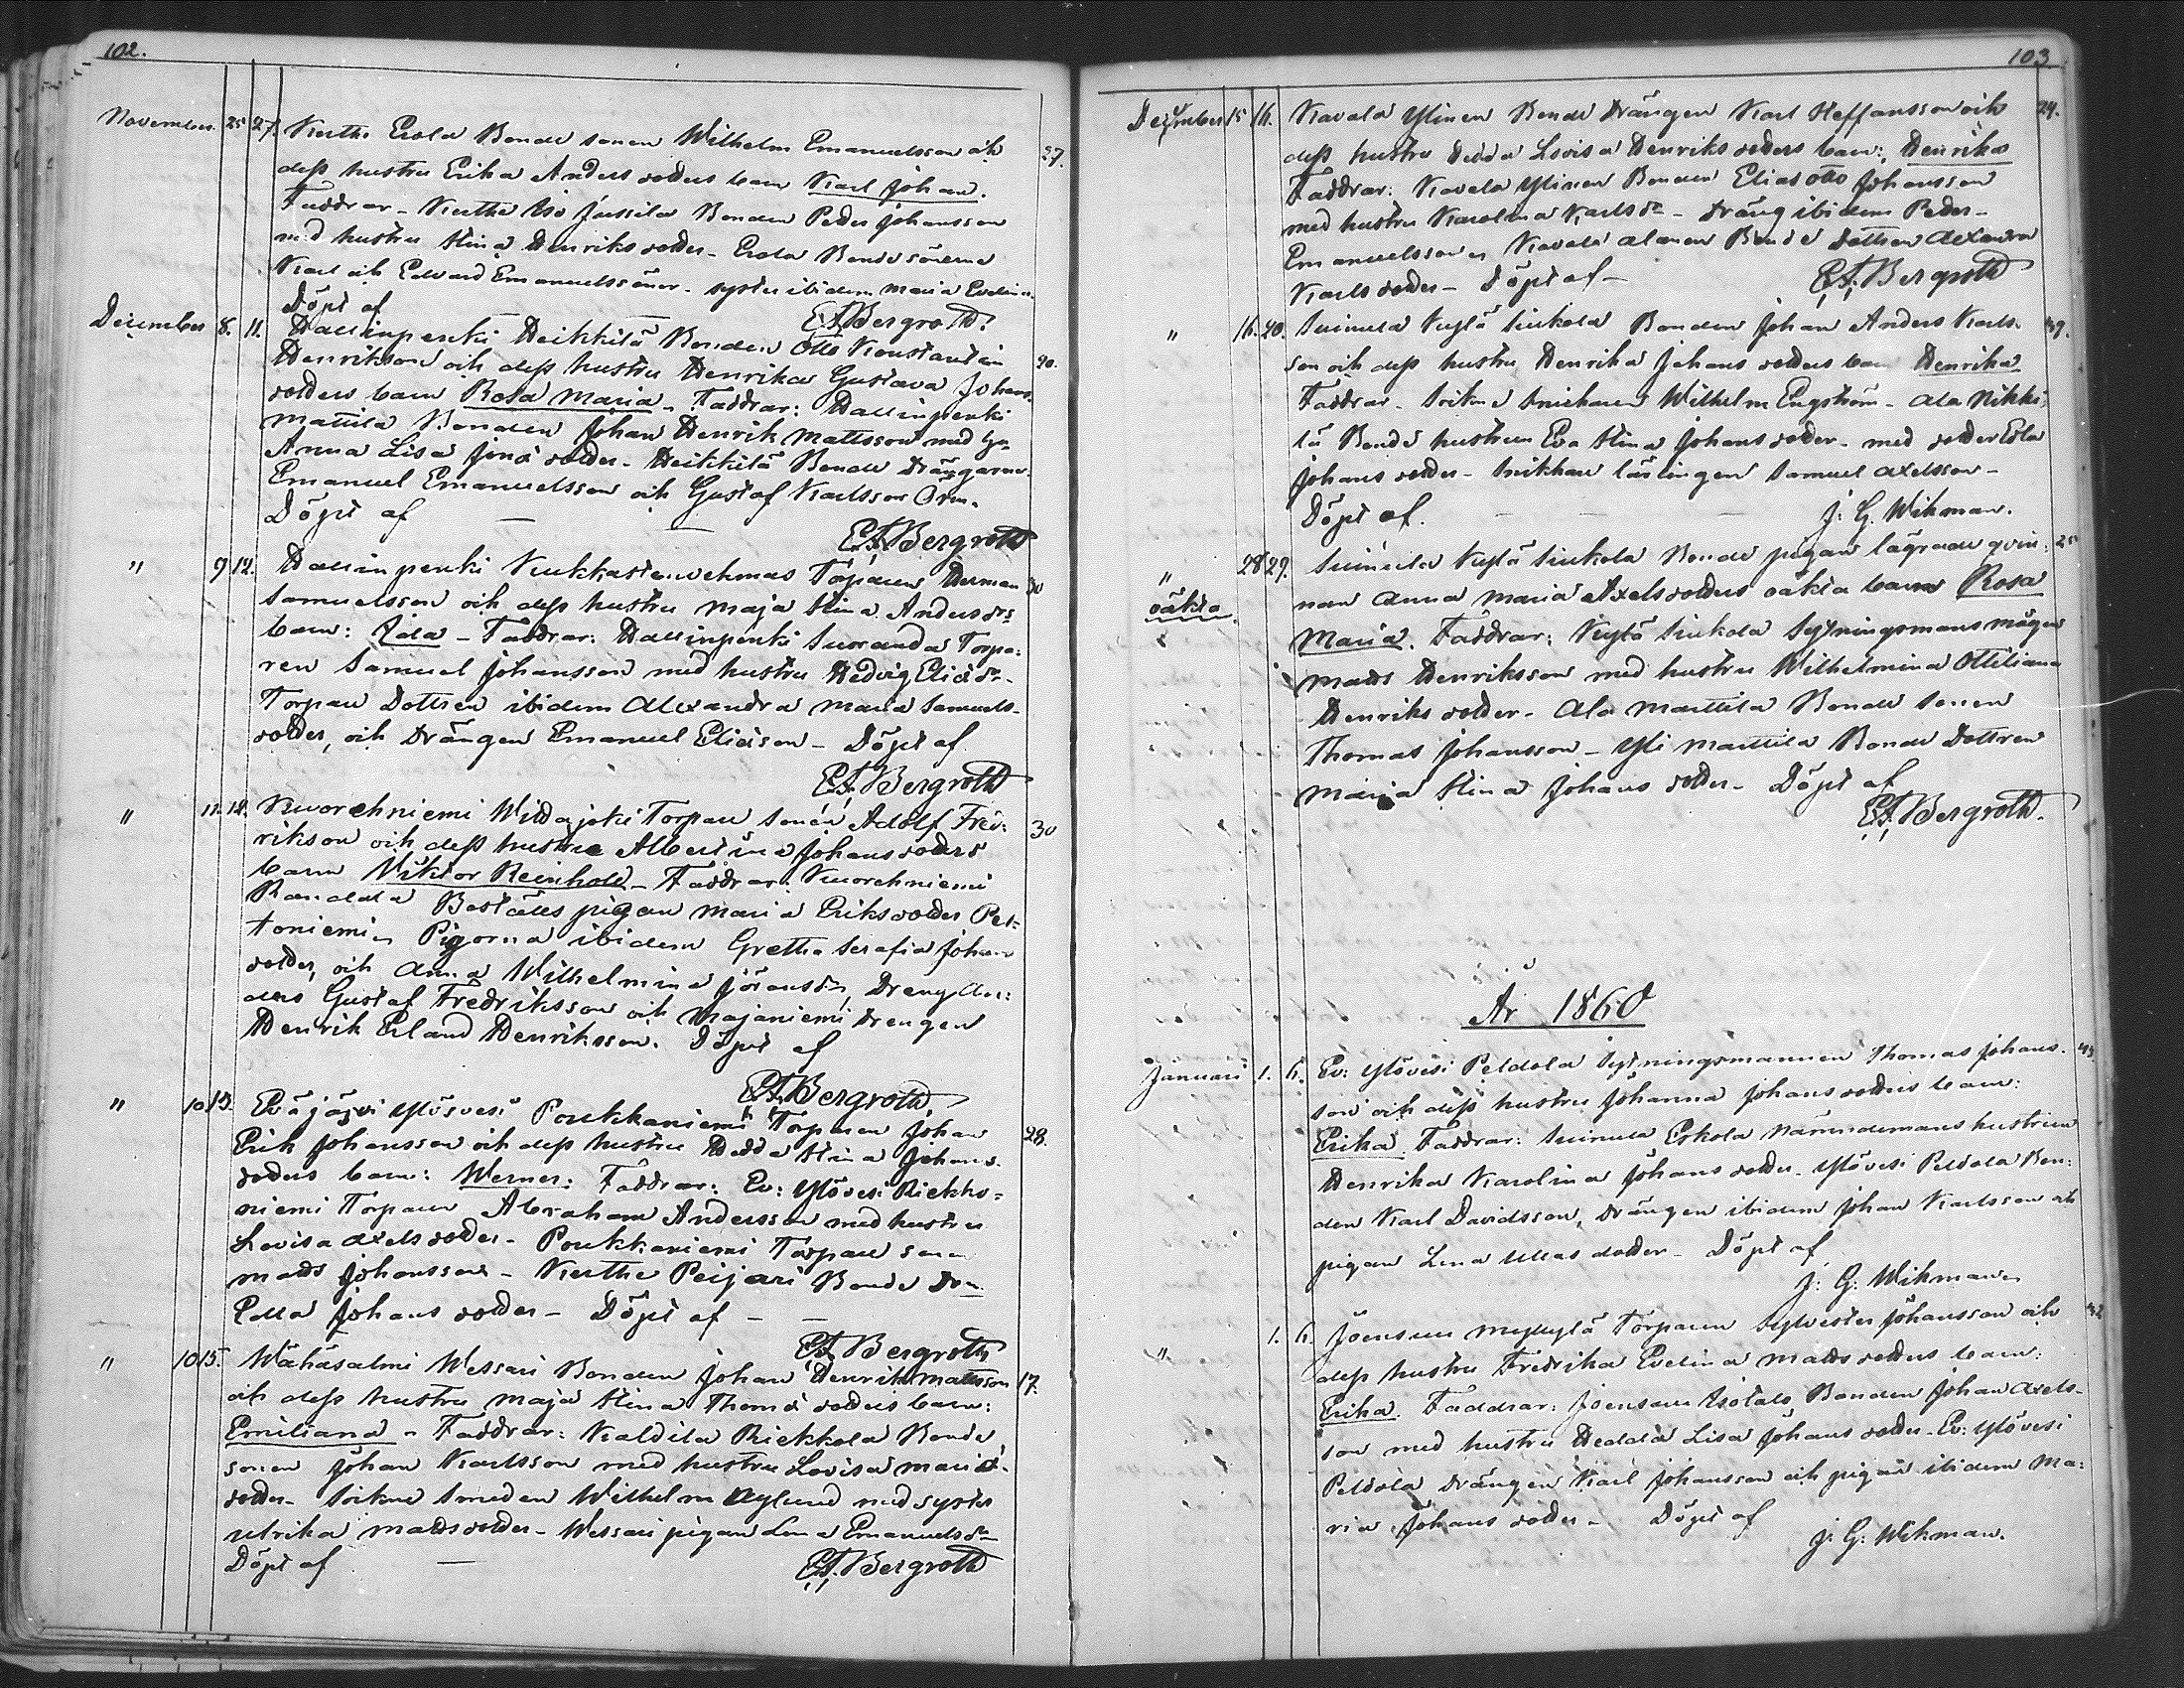 102.
November. 25 27. Kiertho Erola Bonde sonen Wilhelm Emanuelsson och 27.
dess hustru Erika Anders dotters barn Karl Johan.
Faddrar - Kiertho Iso Jussila Bonden Peder Johansson
med hustru Stina Henriks dotter - Erola Bonde sönerna
Karl och Edvard Emanuelssöner - syster ibidem Maria Evelina
Döpt af E.A. Bergroth.
December 8. 11. Hallinpenki Heikkilä Bonden Otto Konstantin 20.
Henrikson och dess hustru Henrika Gustava Johans
dotters barn Rosa Maria - Faddrar: Hallinpenki
Mattila Bonden Johan Henrik Mattsson med
Anna Lisa Jonä dotter - Heikkilä Bonde Drängarne
Emanuel Emanuelsson och Gustaf Karlsson
Döpt af
E.A. Bergroth
" 9 12. Hallinpenki Torparen Herman 30
Samuelsson och dess hustru Maja Stina Anders drs
barn: - Faddrar: Hallinpenki Suoranda Torpa:
ren Samuel Johansson med hustru Hedvig Eliä dr -
Torpare Dottren ibidem Alexandra Maria Samuels-
dotter, och Drängen Emanuel Eliäson - Döpt af
E.A. Bergroth
" 11. 18. Kuorehniemi Widdajoki Torpare sonen Adolf Fred: 30
rikson och dess hustru Albertina Johans dotters
barn Viktor Reinhold - Faddrar: Kuorehniemi
Boställes pigan Maria Eriks dotter Pel:
toniemi, Pigorna ibidem Gretha Serafia Johans
dotter, och Anna Wilhelmina Jörans dr, Dreng An:
ders Gustaf Fredriksson och Majaniemi Drengen
Henrik Erland Henriksson. Döpt af
E.A. Bergroth
" 10 15. Eväjärvi Ylösvesi Poukkaniemi Torparen Johan 28.
Erik Johansson och dess hustru Hedda Stina Johans
dotters barn: Werner: Faddrar: Ev: Ylövesi Riekko=
niemi Torparen Abraham Andersson med hustru
Lovisa Axels dotter - Poukkaniemi Torpare sonen
Mats Johansson - Kierthe Peijari Bonde
Edla Johans dotter - Döpt af -
E.A. Bergroth
" 10 15. Wähäsalmi Wessari Bonden Johan Henrik Mattsson 17.
och dess hustru Maja Stina Thomä dotters barn:
Emiliana - Faddrar: Kaldila Riekkola Bonde
sonen Johan Karlsson med hustru Lovisa Mariä
dotter - Soikna Smeden Wilhelm Aglund med syster
Ulrika Mats dotter - Wessari pigan Lena Emanuels dr
Döpt af
E.A. Bergroth
103
December 15 16. Kavala Ylinen Bonde Drängen Karl Steffansson och 24.
dess hustru Hedda Lovisa Henriks dotters barn: Henrika
Faddrar: Kavala Ylinen Bonden Elias Otto Johansson
med hustru Karolina Karls dr - Dräng ibidem Peder
Emanuelsson, Kavala Alanen Bonde Dottren Alexandra
Karls dotter - Döpt af - E.A. Bergroth
" 16. 20. Suinula Kylä Siukola Bonden Johan Anders Karls- 39.
son och dess hustru Henrika Johans dotters barn Henrika
Faddrar - Soikna Snickaren Wilhelm Engström - Ala Nikki:
lä Bonde hustrun Eva Stina Johans dotter - med dotter Edla
Johans dotter - Snickare lärlingen Samuel Axelsson -
Döpt af. J. G. Wikman.
" 28 29. Suinula Kylä Siukola Bonde pigan lägrade qvin: 25
oäkta
nan Anna Maria Axels dotters oäkta barn Rosa
Maria. Faddrar: Kylä Siukola Sytningsmans mågen
Mats Henriksson med hustru Wilhelmina Ottiliana
Henriks dotter - Ala Marttila Bonde sonen
Thomas Johansson - Yli Marttila Bonde Dottren
Maria Stina Johans dotter - Döpt af
E.A. Bergroth.
År 1860
Januari 1. 6. Ev: Ylövesi Peldola Sytningsmannen Thomas Johans-
son och dess hustru Johanna Johans dotters barn:
Erika. Faddrar: Suinula Erkola Nämndemans hustrun
Henrika Karolina Johans dotter - Ylövesi Peldola Bon:
den Karl Davidsson, Drängen ibidem Johan Karlsson och
pigan Lena Mats dotter - Döpt af
J. G. Wikman
" 1. 6. Joensuu Myllykylä Torparen Sylvester Johansson och 32
dess hustru Fredrika Evelina Mats dotters barn:
Erika. Faddrar: Joensuu Isotalo, Bonden Johan Axels-
son med hustru Hedda Lisa Johans dotter - Ev: Ylövesi
Peldola Drängen Karl Johansson och pigan ibidem Ma:
ria Johans dotter - Döpt af
J. G. Wikman.